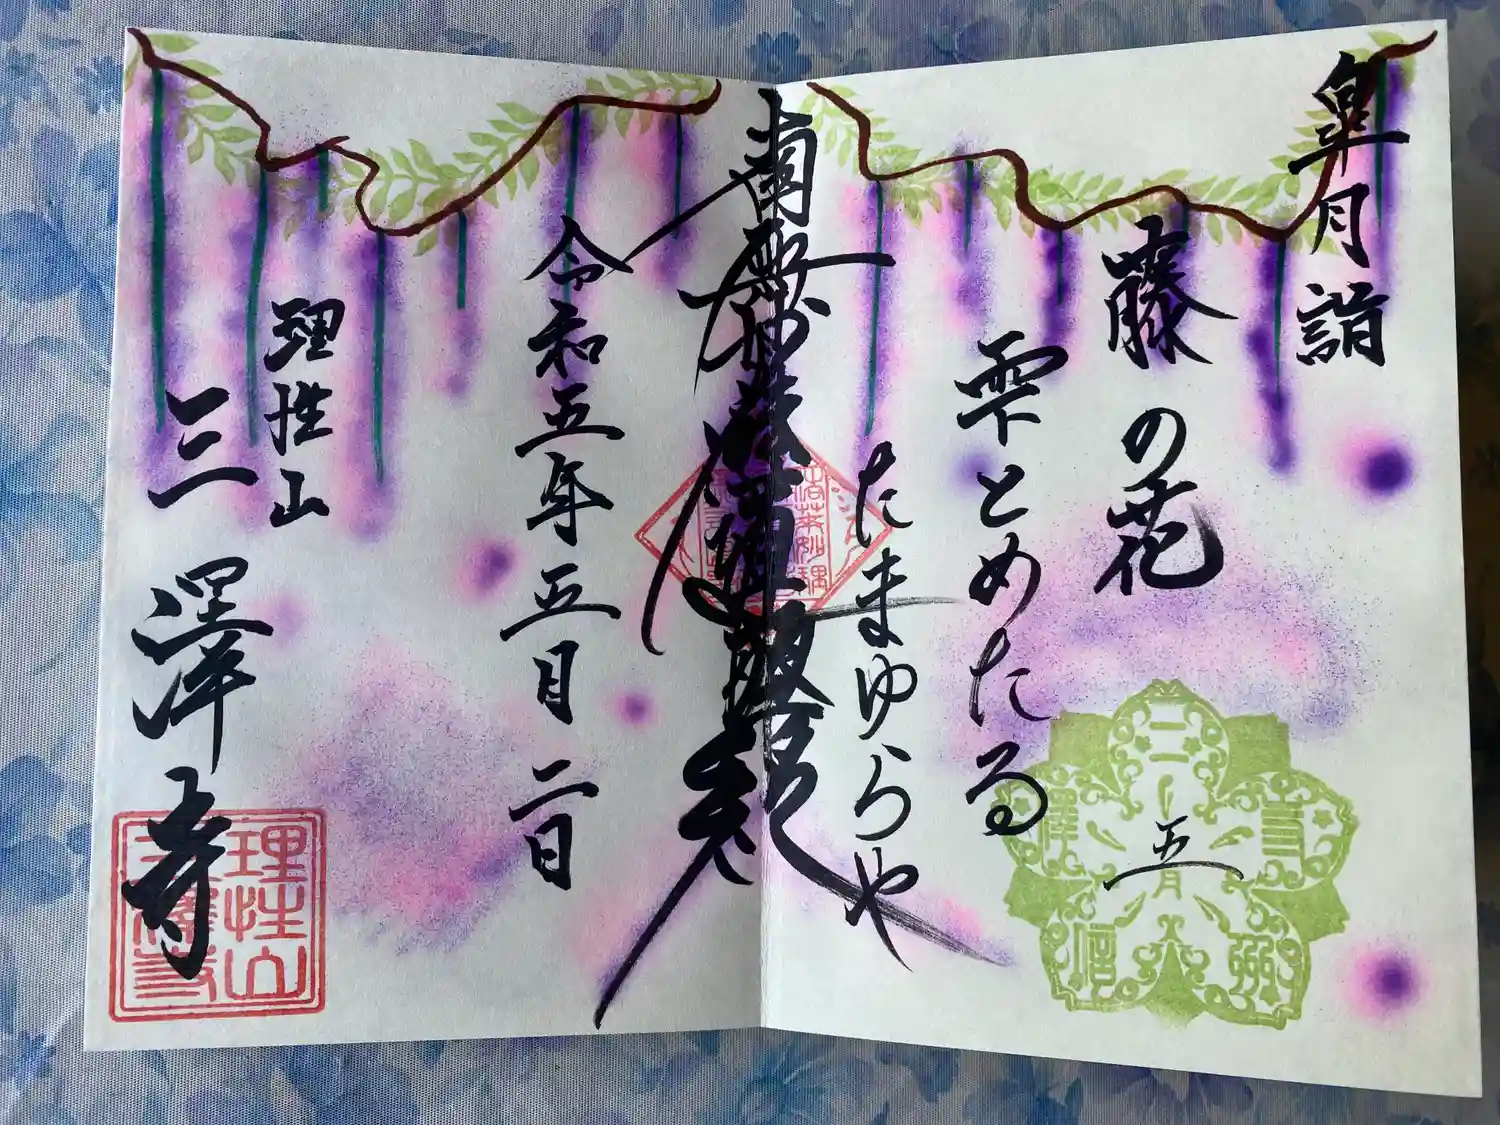 皐月詣
藤の花
雫とめたる
たまゆらや
南無妙法蓮華経
令和五年五月二日
理性山
三澤寺
理性山
三澤寺
五
月